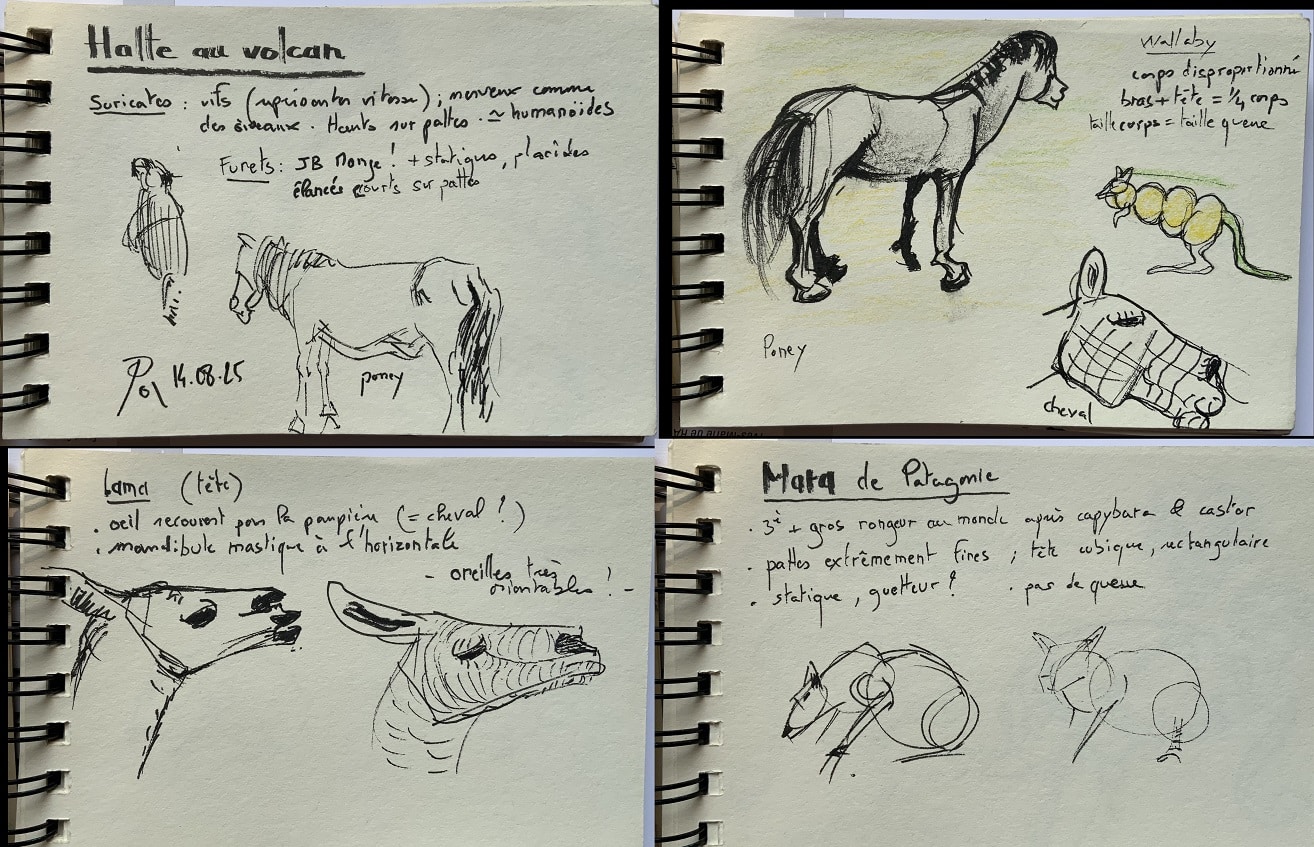 Halte au volcan
Suricates : vifs (représenter vitesse) ; nerveux comme
des oiseaux. Hauts sur pattes. ≃ humanoïdes
Furets : JB Monge ! + statiques, placides
élancés courts sur pattes
poney
14.08.25
Wallaby
corps disproportionné
bras + tête = 1/4 corps
taille corps = taille queue
Poney
cheval
Lama (tête)
. oeil recouvert par la paupière (= cheval ?)
. mandibule mastique à l'horizontale
- oreilles très
orientables ! -
Mara de Patagonie
. 3è + gros rongeur au monde après capybara & castor
. pattes extrêmement fines ; tête cubique, rectangulaire
. statique, guetteur ? . pas de queue